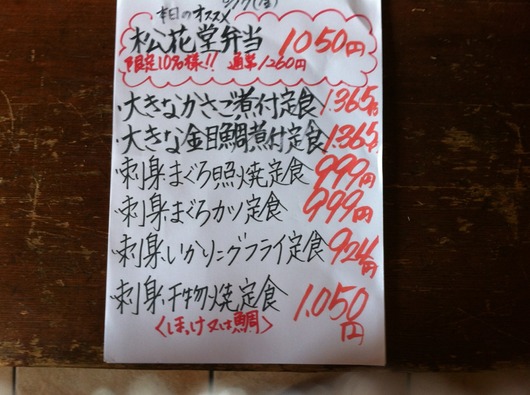 本日のオススメ
松花堂弁当 1050円
限定10名様!! 通常1260円
・大きなかさご煮付定食 1.365円
・大きな金目鯛煮付定食 1.365円
・刺身、まぐろ照り焼定食 999円
・刺身、まぐろカツ定食 999円
・刺身、いかリングフライ定食 924円
・刺身、干物焼定食 1.050円
<ほっけ又は鯛>